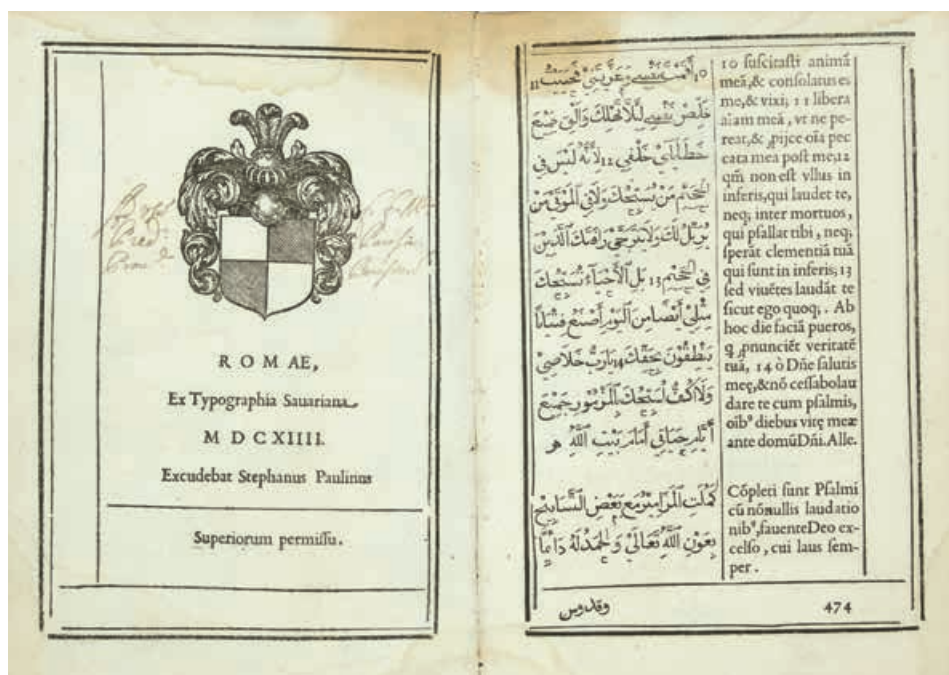 ROMAE,
Ex Typographia Sauariana
MDCXIIII.
Excudebat Stephanus Paulinus
Superiorum permissu.
10 أقمت نفسي وعزيتني فحييت 11
خلص نفسي ليلا تهلك والق جميع
خطاياي خلفي 12 لانه ليس في
الجحيم من يسبحك ولا في الموتى من
يرتل لك ولا يترجى رافتك الذين
في الجحيم 13 بل الأحياء تسبحك
مثلي أيضا من اليوم أصنع فتيانا
ينطقون بحقك 14 يا رب خلاصي
ولا أكف لسبحك المزمور جميع
أيام حياتي أمام بيت الله هو
كملت المزامير مع بعض التسابيح
بعون الله تعالى والحمد له دايما
وقدوس
10 suscitasti animã
meã, & consolatus es
me, & vixi; 11 libera
aĩam meã, vt ne pe-
reat, & ꝓijce oĩa pec
cata mea post me, 12
qm̃ non est vllus in
inferis, qui laudet te,
neq; inter mortuos,
qui psallat tibi, neq;
sperãt clementiã tuã
qui sunt in inferis; 13
sed viuẽtes laudãt te
sicut ego quoq;. Ab
hoc die faciã pueros,
q ꝓnunciẽt veritatẽ
tuã, 14 ò Dñe salutis
meę, & nõ cessabo lau
dare te cum psalmis,
oĩbꝰ diebus vitę meæ
ante domũ Dñi. Alle.
Cõpleti sunt Psalmi
cũ nõnullis laudatio
nibꝰ, fauente Deo ex-
celso, cui laus sem-
per.
474